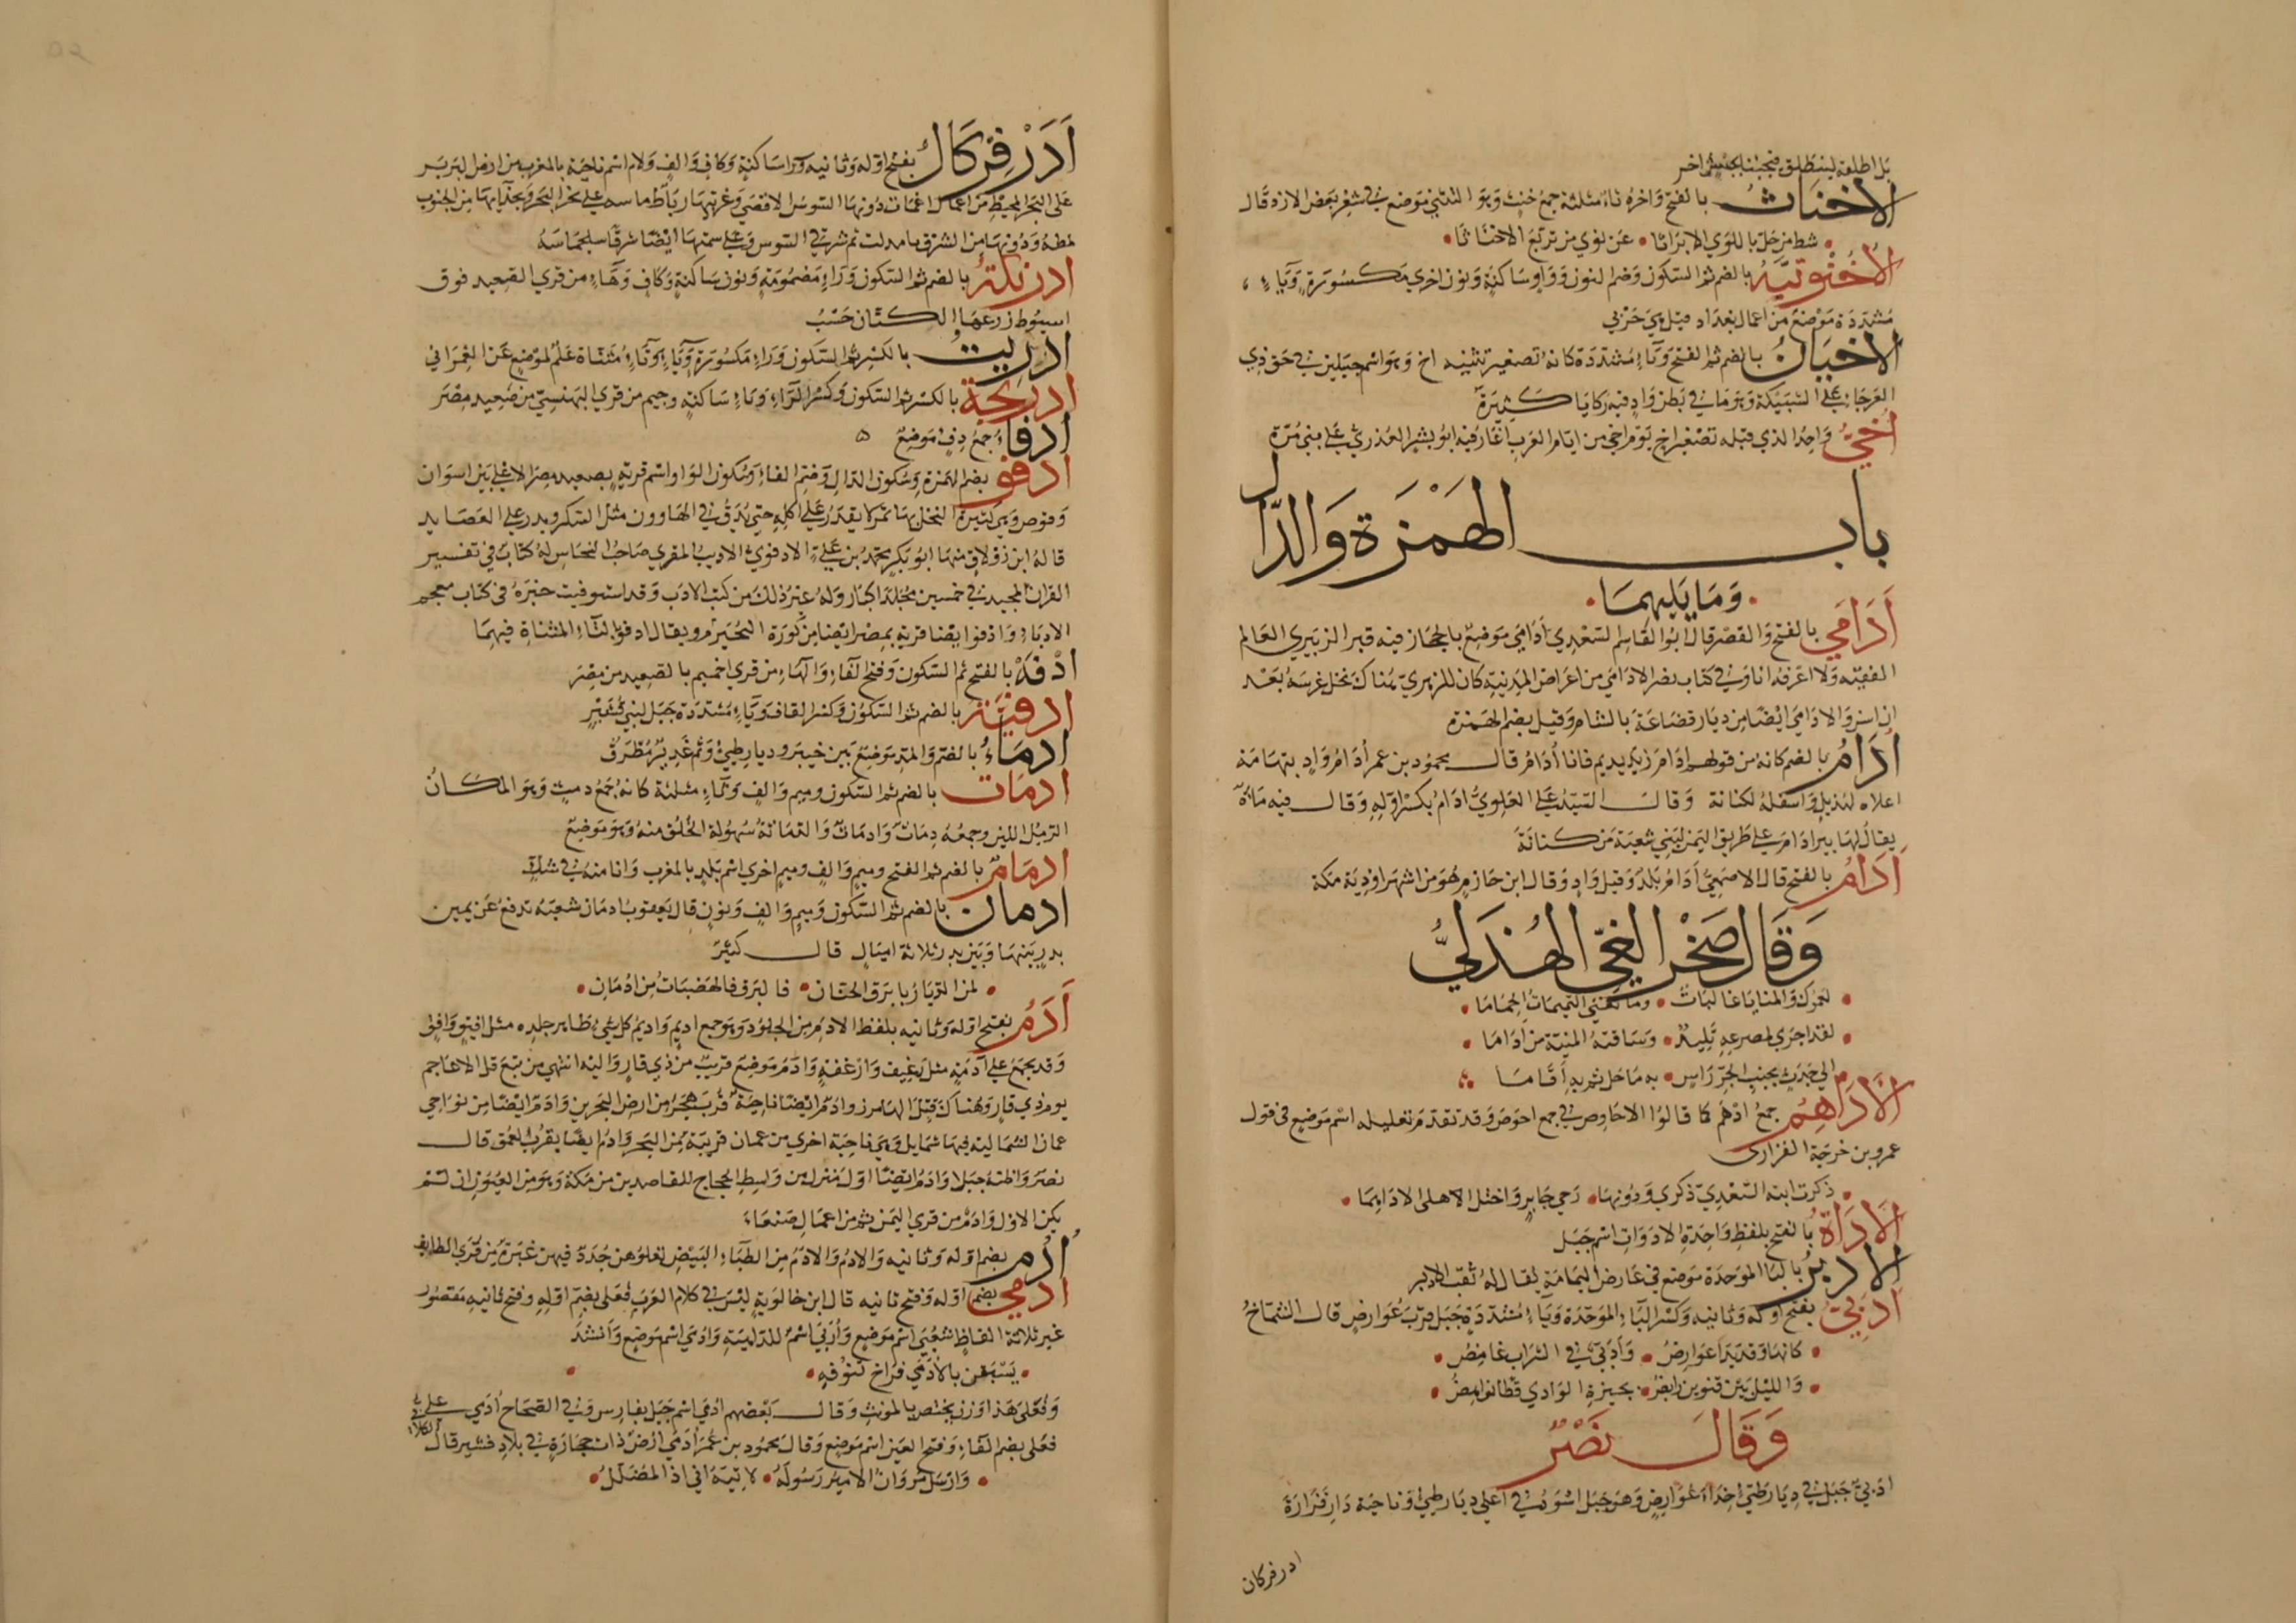 بل اطلقه لينطلق فيجبنا بجيش اخر
الاخناث بالفتح واخره ثاء مثلثة جمع خنث وهو التثني موضع في شعر بعض الازد قال
شط من حل باللوي الابراثا عن نوي من تربع الاخناثا
الاخنونية بالضم ثم السكون وضم النون وواو ساكنة ونون اخري مكسورة وياء
مشددة موضع من اعمال بغداد قيل هي حربي
الاخيان بالضم ثم الفتح وياء مشددة كانه تصغير تثنيه اخ وهو اسم جبلين في حق ذي
العرجاء علي الشبيكة وهو ماء في بطن واد فيه ركايا كثيرة
اخي واحد الذي قبله تصغير اخ يوم اخي من ايام العرب اغار فيه ابو بشر العذري علي بني مرة
باب الهمزة والدال
وما يليهما
ادامي بالفتح والقصر قال ابو القاسم السعدي ادامي موضع بالحجاز فيه قبر الزهيري العالم
الفقيه ولا اعرفه انا وفي كتاب نصر الادامي من اعراض المدينة كان للزهري هناك نخل غرسه بعد
ان اسن والادامي ايضا من ديار قضاعة بالشام وقيل بضم الهمزة
ادام بالضم كانه من قولهم ادام زيد يديم فانا أدام قال محمود بن عمر أدام واد بتهامة
اعلاه لهذيل واسفله لكنانة وقال السيد علي العلوي ادام بكسر اوله وقال فيه ماءة
يقال لها بير ادام علي طريق اليمن لبني شعبة من كنانة
ادام بالفتح قال الاصمعي أدام بلد وقيل واد وقال ابن حازم هو من اشهر اودية مكة
وقال صخر الغي الهذلي
لعمرك والمنايا غالبات وما تغني التميمات الحماما
لقد اجري لمصرعه تليد وساقته المنية من أداما
الي جدث بجنب الجو راس به ما حل ثم به أقاما
الاداهم جمع ادهم كما قالوا الاحاوص في جمع احوص وقد تقدم تعليله اسم موضع في قول
عمرو بن خرجة الفزاري
ذكرت ابنة السعدي ذكري ودونها رحي جابر واحتل الاهلي الاداهما
الاداة بالفتح بلفظ واحدة الادوات اسم جبل
الادبر بالباء الموحدة موضع في عارض اليمامة يقال له ثقب الادبر
ادبي بفتح اوله وثانيه وكسر الباء الموحدة وياء مشددة جبل قرب عوارض قال الشماخ
كانها وقد بدا عوارض وأدبي في السراب غامض
والليل بين قنوين رابض بجيزة الوادي قطا نواهض
وقال نصر
ادبي جبل في ديار طيئ حذاء عوارض وهو جبل اسود في اعلي ديار طيئ وناحية دار فزارة
ادرفركان
أدرفركال بفتح اوله وثانيه وراء ساكنة وكاف والف ولام اسم ناحية بالمغرب من ارض البربر
علي البحر المحيط من اعمال اغمات دونها السوس الاقصي وغربيها رباط ماسه علي نحر البحر وبحذايها من الجنوب
لمطه ودونها من الشرق تامدلت ثم شرقي السوس وعلي سمتها ايضا شرقا سلجماسه
ادرنكة بالضم ثم السكون وراء مضمومة ونون ساكنة وكاف وهاء من قري الصعيد فوق
اسيوط زرعها الكتان حسب
ادريت بالكسر ثم السكون وراء مكسورة وياء وتاء مثناة علم لموضع عن العمراني
ادريجة بالكسر ثم السكون وكسر الراء وياء ساكنة وجيم من قري البهنسي من صعيد مصر
ادفاء جمع دفء موضع
ادفو بضم الهمزة وسكون الدال وضم الفاء وسكون الواو اسم قرية بصعيد مصر الاعلي بين اسوان
وقوص وهي كثيرة النخل بها تمر لا يقدر علي اكله حتي يدق في الهاوون مثل السكر ويذر علي العصايد
قاله ابن زولاق منها ابو بكر محمد بن علي الادفوي الاديب المقري صاحب النحاس له كتاب في تفسير
القران المجيد في خمسين مجلدا كبار وله غير ذلك من كتب الادب وقد استوفيت خبره في كتاب معجم
الادباء وادفوا يضا قرية بمصر ايضا من كورة البحيرة ويقال ادفو بالتاء المثناة فيهما
ادفة بالفتح ثم السكون وفتح الفاء والهاء من قري اخميم بالصعيد من مصر
ادقية بالضم ثم السكون وكسر القاف وياء مشددة جبل لبني قشير
ادماء بالضم والمد موضع بين خيبر وديار طيئ وثم غدير مطرق
ادمات بالضم ثم السكون وميم والف وثاء مثلثة كانه جمع دمث وهو المكان
الرمل اللين وجمعه دماث وادماث والدماثة سهولة الخلق منه وهو موضع
ادمام بالضم ثم الفتح وميم والف وميم اخري اسم بلد بالمغرب وانا منه في شك
ادمان بالضم ثم السكون وميم والف ونون قال يعقوب ادمان شعبة تدفع عن يمين
بدر بينها وبين بدر ثلاثة اميال قال كثير
لمن الديار بابرق الحنان فالبرق فالهضبات من ادمان
أدم بفتح اوله وثانيه بلفظ الادم من الجلود وهو جمع اديم واديم كل شيء ظاهر جلده مثل افيق وافق
وقد يجمع علي آدمة مثل رغيف وارغفة وادم موضع قريب من ذي قار واليه انتهي من تبع فل الاعاجم
يوم ذي قار وهناك قتل الهامرز وادم ايضا ناحية قرب هجر من ارض البحرين وادم ايضا من نواحي
عمان الشمالية فيها شمايل وهي ناحية اخري من عمان قريبة من البحر وادم ايضا بقرب العمق قال
نصر واظنه جبلا وادم ايضا اول منزل من واسط الحجاج للقاصدين من مكة وهو من العيون ان لم
يكن الاول وادم من قري اليمن ثم من اعمال صنعاء
أدم بضم اوله وثانيه والادم والادم من الظباء البيض تعلوهن جدد فيهن غبرة من قري الطايف
ادمي بضم اوله وفتح ثانيه قال ابن خالويه ليس في كلام العرب فعلي بضم اوله وفتح ثانيه مقصور
غير ثلاثة الفاظ شعبي اسم موضع وأربي اسم للداهية وادمي اسم موضع وأنشد
يسبقن بالأدمي فراخ تنوفة
وفعلي هذا وزن يختص بالمونث وقال بعضهم ادمي اسم جبل بفارس وفي الصحاح أدمي علي
فعلي بضم الفاء وفتح العين اسم موضع وقال محمود بن عمر أدمي ارض ذات حجارة في بلاد قشير قال الكلابي
وارسل مروان الامير رسوله لاتيه اني اذا لمضلل